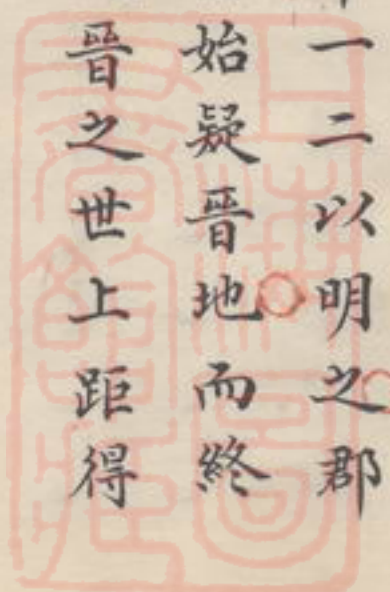 一二以明之郡
始疑晉地而終
晉之世上距得